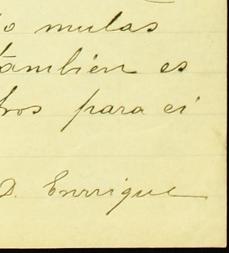 o mulas
también es
tros para el
D. Enrrique